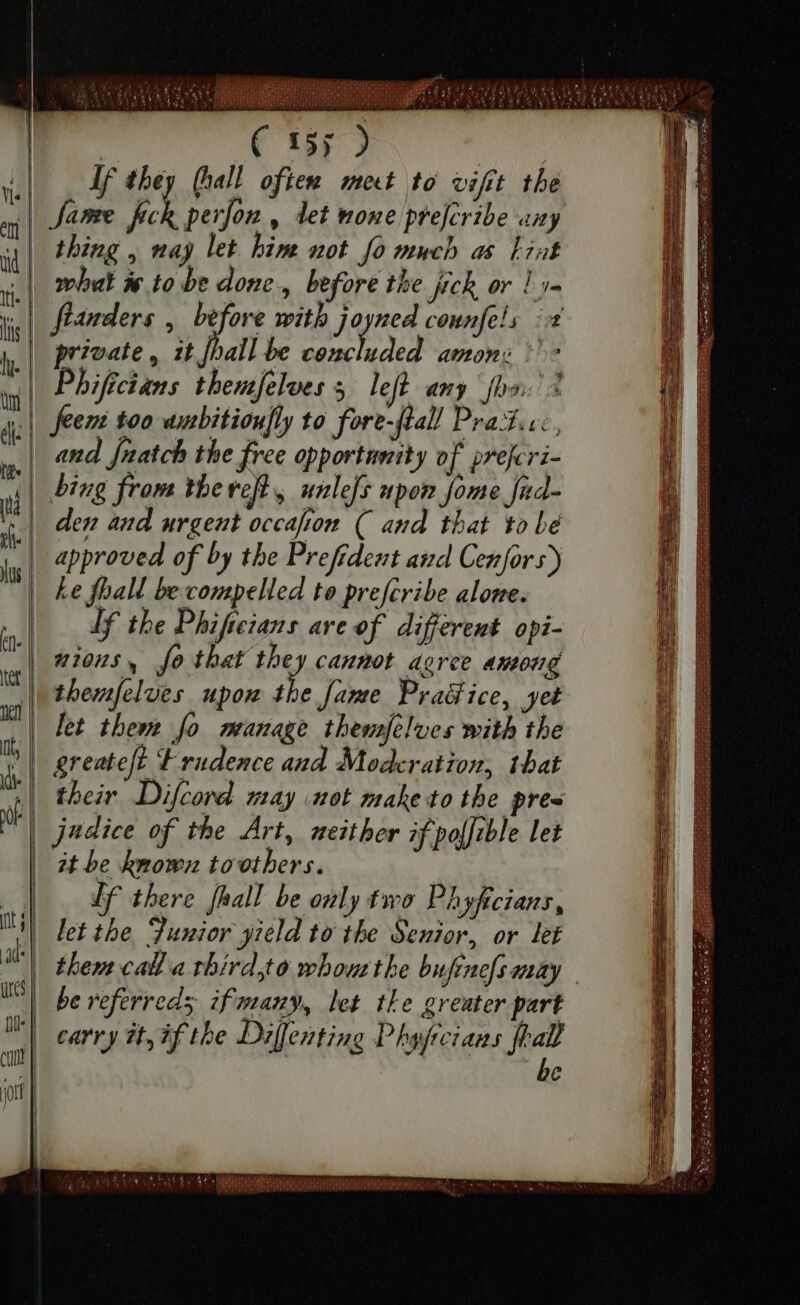 ( 155 )
If they ſhall often meet to viſit the
ſame ſick perſon, let none preſcribe any
thing, nay let him not ſo much as hint
what is to be done, before the ſick or by-
ſtanders, before with joyned counſels in
private, it ſhall be concluded among the
Phiſicians themſelves; leſt any ſhould
ſeem too ambitiouſly to fore-ſtall Practice,
and ſnatch the free opportunity of preſcri-
bing from the reſt, unleſs upon ſome ſud-
den and urgent occaſion ( and that to be
approved of by the Preſident and Cenſors)
he ſhall be compelled to preſcribe alone.
If the Phiſicians are of different opi-
nions, ſo that they cannot agree among
themſelves upon the ſame Practice, yet
let them ſo manage themſelves with the
greateſt Prudence and Moderation, that
their Diſcord may not make to the pre-
judice of the Art, neither if poſſible let
it be known to others.
If there ſhall be only two Phyſicians,
let the Junior yield to the Senior, or let
them call a third, to whom the buſineſs may
be referred; if many, let the greater part
carry it, if the Diſſenting Phyſicians ſhall
be